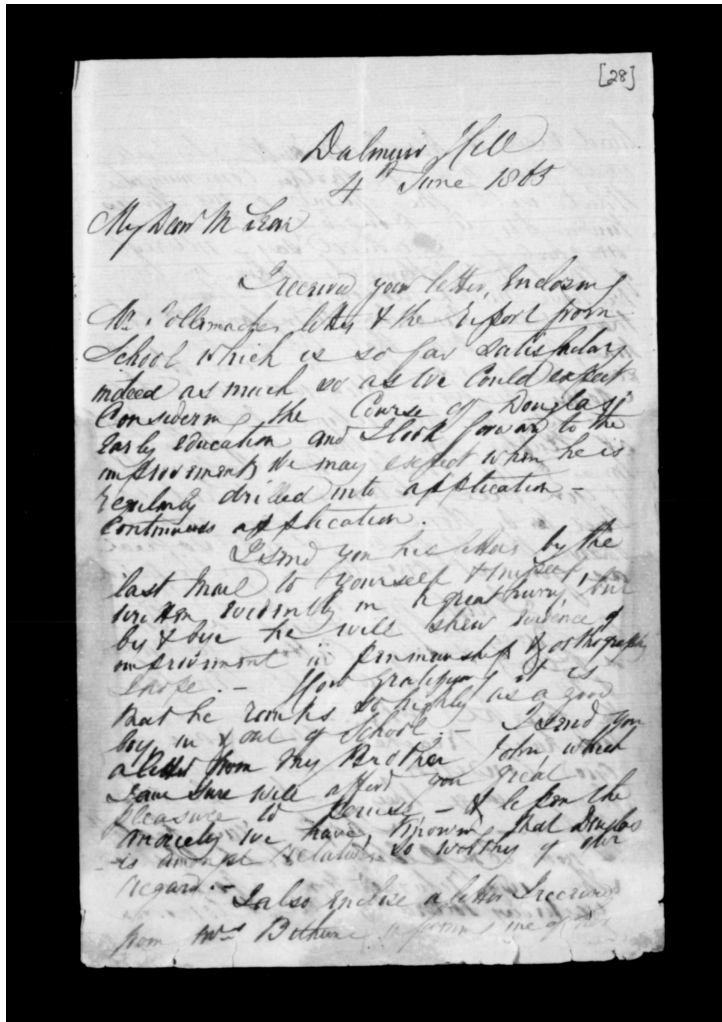 [28]
Dalmuir Hill
4th June 1865
My Dear McLean
I received your letter, enclosing
Mr. Tollemache's letter & the report from
School which is so far satisfactory
indeed as much so as we could expect
Considering the Course of Douglas'
early education and I look forward to the
improvements we may expect when he is
regularly drilled into application –
Continuous application.
I send you his letters by the
last mail to yourself & myself, but
written evidently in a great hurry, but
by & bye he will shew evidence of
improvement in penmanship & orthography
I hope. – How gratifying it is
that he ranks so highly as a good
boy in & out of School. – I send you
a letter from my Brother John, which
I am sure will afford you great
pleasure to peruse – & lessen the
anxiety we have, knowing that Douglas
is amongst relatives so worthy of our
regard. –
I also enclose a letter I received
from Mrs Bethune informing me of her